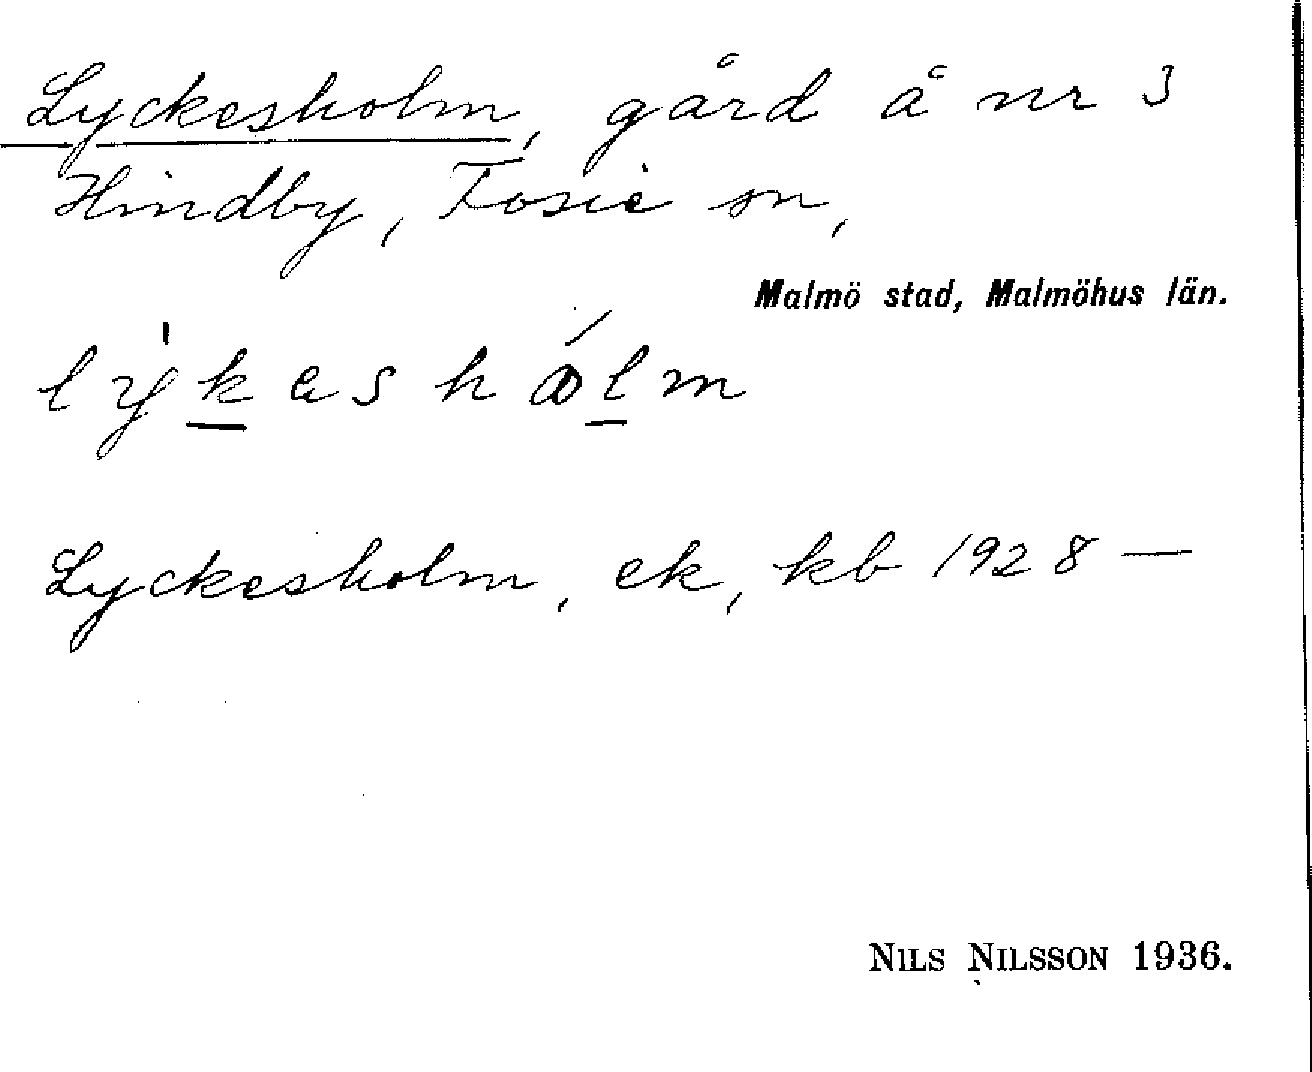 Lyckesholm, gård å nr 3
Hindby, Fosie sn,
Malmö stad, Malmöhus län.
Lyckesholm, ek, kb 1928 —
NILS NILSSON 1936.